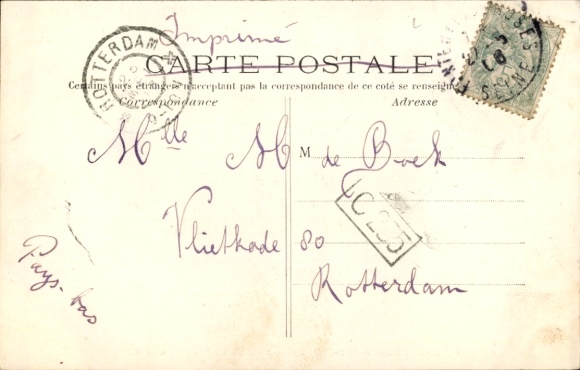 Imprimé
CARTE POSTALE
Certains pays étrangers n'acceptant pas la correspondance de ce coté se renseigner
Correspondance
Adresse
ROTTERDAM
SEINE
Mlle M M de Bock
Vlietkade 80
Rotterdam
Pays-bas